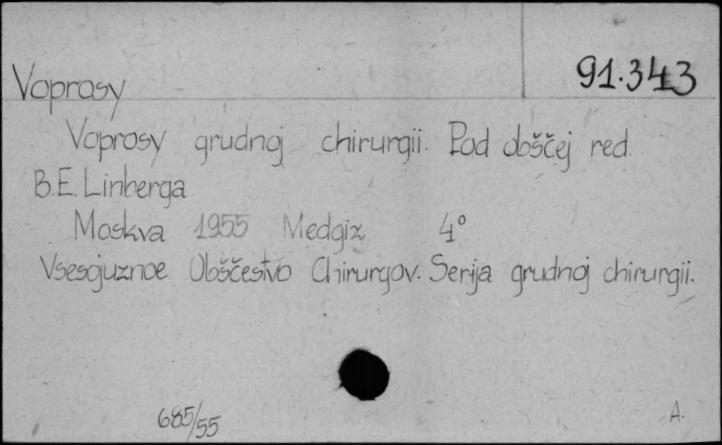 91.343
Voprosy
Voprosy grudnoj chirurgii. Pod obščej red.
B.E. Linberga
Moskva 1955 Medgiz 4°
Vsesojuznoe Obščestvo Chirurgov. Serija grudnoj chirurgii.
685/55
A.